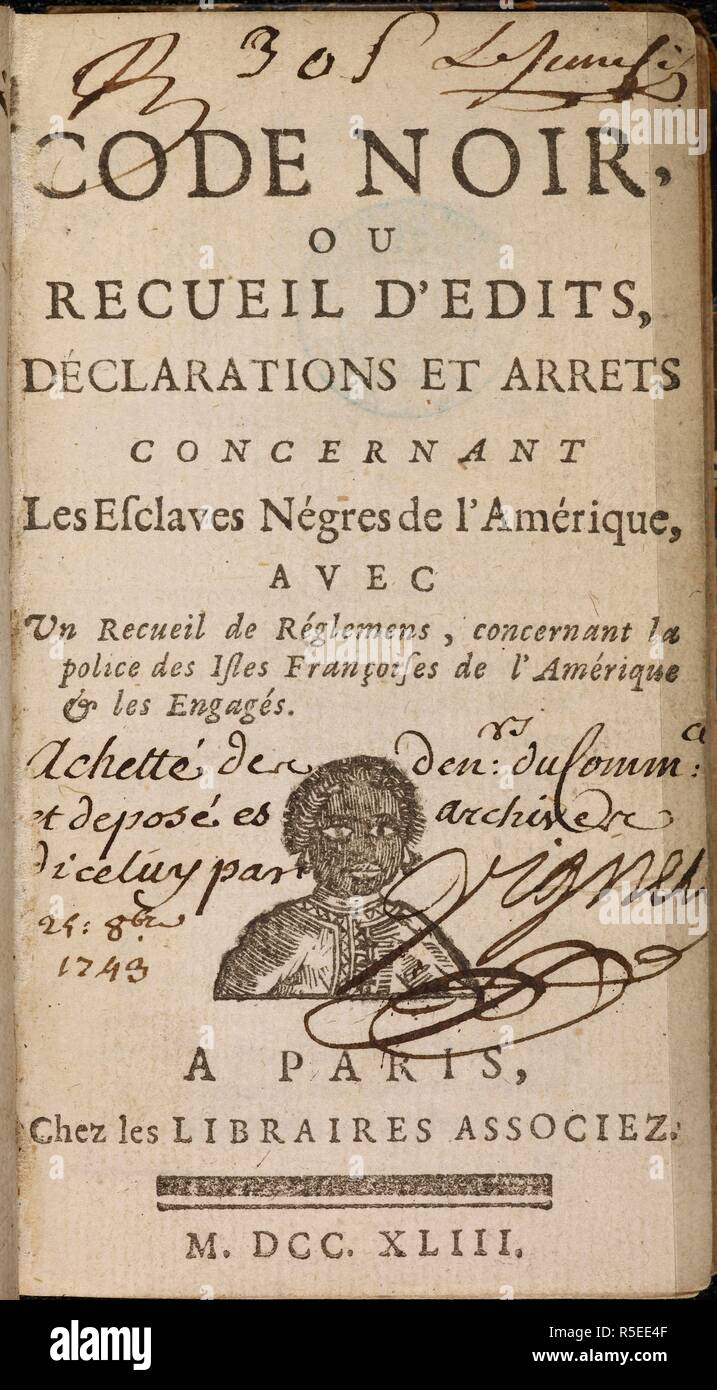 305 Le Jeune
CODE NOIR,
OU
RECUEIL D'EDITS,
DÉCLARATIONS ET ARRETS
CONCERNANT
Les Eſclaves Négres de l'Amérique,
AVEC
Un Recueil de Réglemens, concernant la
police des Iſles Françoiſes de l'Amérique
& les Engagés.
Achetté des den:rs du Comm:ce
et deposé es archives
d'iceluy par Vignes
25: 8bre
1743
A PARIS,
Chez les LIBRAIRES ASSOCIEZ.
M. DCC. XLIII.
alamy
Image ID: R5EE4F
www.alamy.com